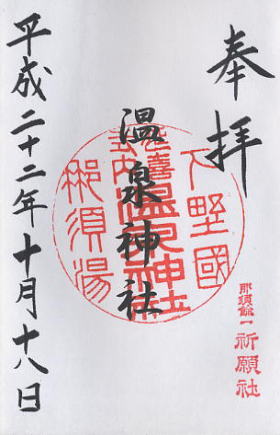 奉拝
下野國
延喜式内
温泉神社
那須湯
温泉神社
那須余一
祈願社
平成二十二年十月十八日